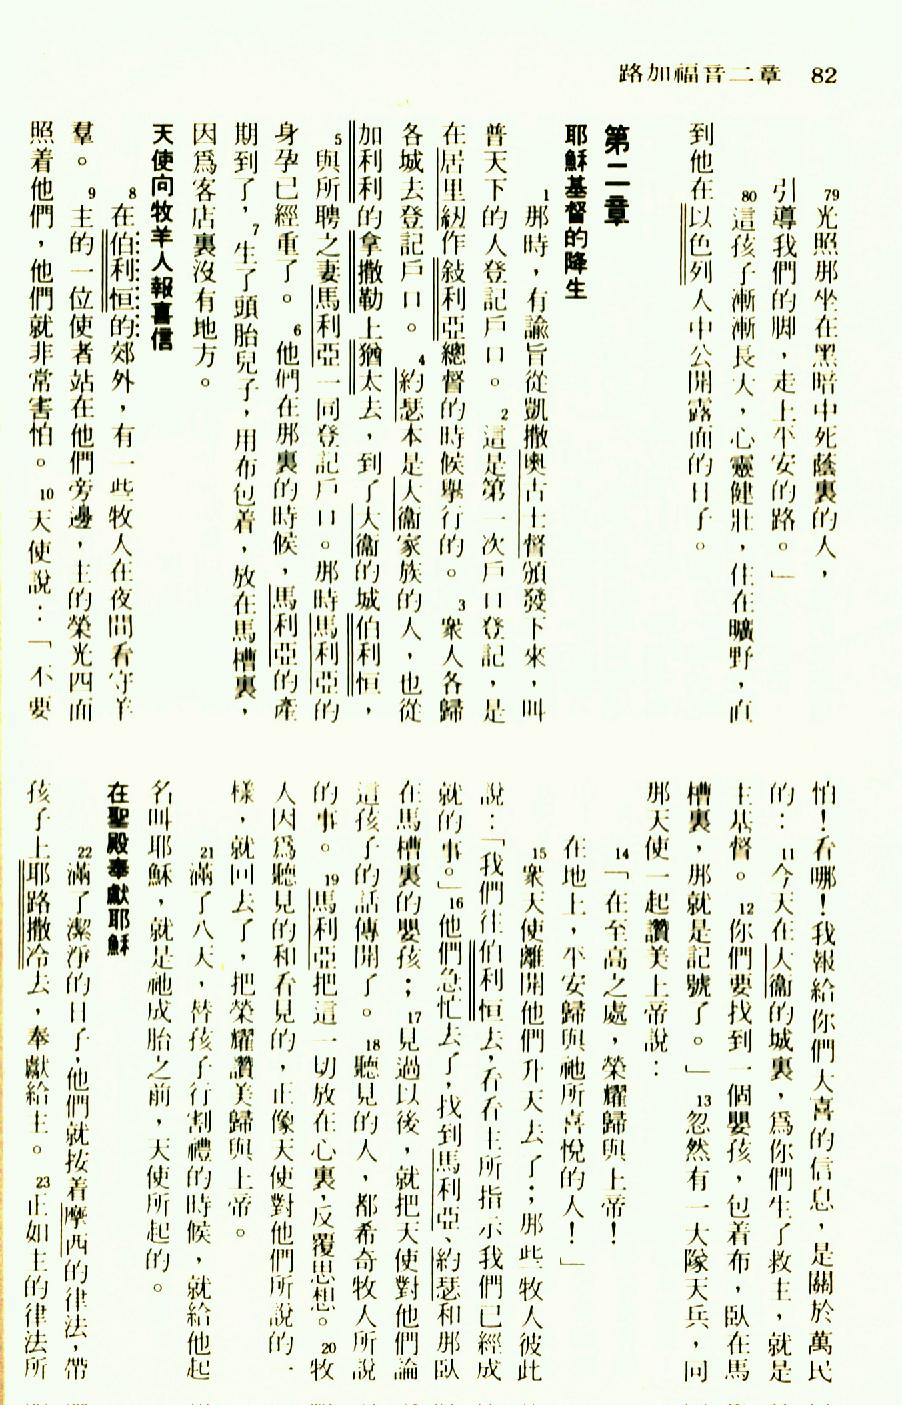 路加福音二章 82
79光照那坐在黑暗中死蔭裏的人，
引導我們的脚，走上平安的路。」
80這孩子漸漸長大，心靈健壯，住在曠野，直
到他在以色列人中公開露面的日子。
第二章
耶穌基督的降生
1那時，有諭旨從凱撒奧古士督頒發下來，叫
普天下的人登記戶口。2這是第一次戶口登記，是
在居里紉作敍利亞總督的時候舉行的。3衆人各歸
各城去登記戶口。4約瑟本是大衞家族的人，也從
加利利的拿撒勒上猶太去，到了大衞的城伯利恒，
5與所聘之妻馬利亞一同登記戶口。那時馬利亞的
身孕已經重了。6他們在那裏的時候，馬利亞的產
期到了，7生了頭胎兒子，用布包着，放在馬槽裏，
因爲客店裏沒有地方。
天使向牧羊人報喜信
8在伯利恒的郊外，有一些牧人在夜間看守羊
羣。9主的一位使者站在他們旁邊，主的榮光四面
照着他們，他們就非常害怕。10天使說：「不要
怕！看哪！我報給你們大喜的信息，是關於萬民
的：11今天在大衞的城裏，爲你們生了救主，就是
主基督。12你們要找到一個嬰孩，包着布，臥在馬
槽裏，那就是記號了。」13忽然有一大隊天兵，同
那天使一起讚美上帝說：
14「在至高之處，榮耀歸與上帝！
在地上，平安歸與祂所喜悅的人！」
15衆天使離開他們升天去了；那些牧人彼此
說：「我們往伯利恒去，看看主所指示我們已經成
就的事。」16他們急忙去了，找到馬利亞、約瑟和那臥
在馬槽裏的嬰孩；17見過以後，就把天使對他們論
這孩子的話傳開了。18聽見的人，都希奇牧人所說
的事。19馬利亞把這一切放在心裏，反覆思想。20牧
人因爲聽見的和看見的，正像天使對他們所說的一
樣，就回去了，把榮耀讚美歸與上帝。
21滿了八天，替孩子行割禮的時候，就給他起
名叫耶穌，就是祂成胎之前，天使所起的。
在聖殿奉獻耶穌
22滿了潔淨的日子，他們就按着摩西的律法，帶
孩子上耶路撒冷去，奉獻給主。23正如主的律法所